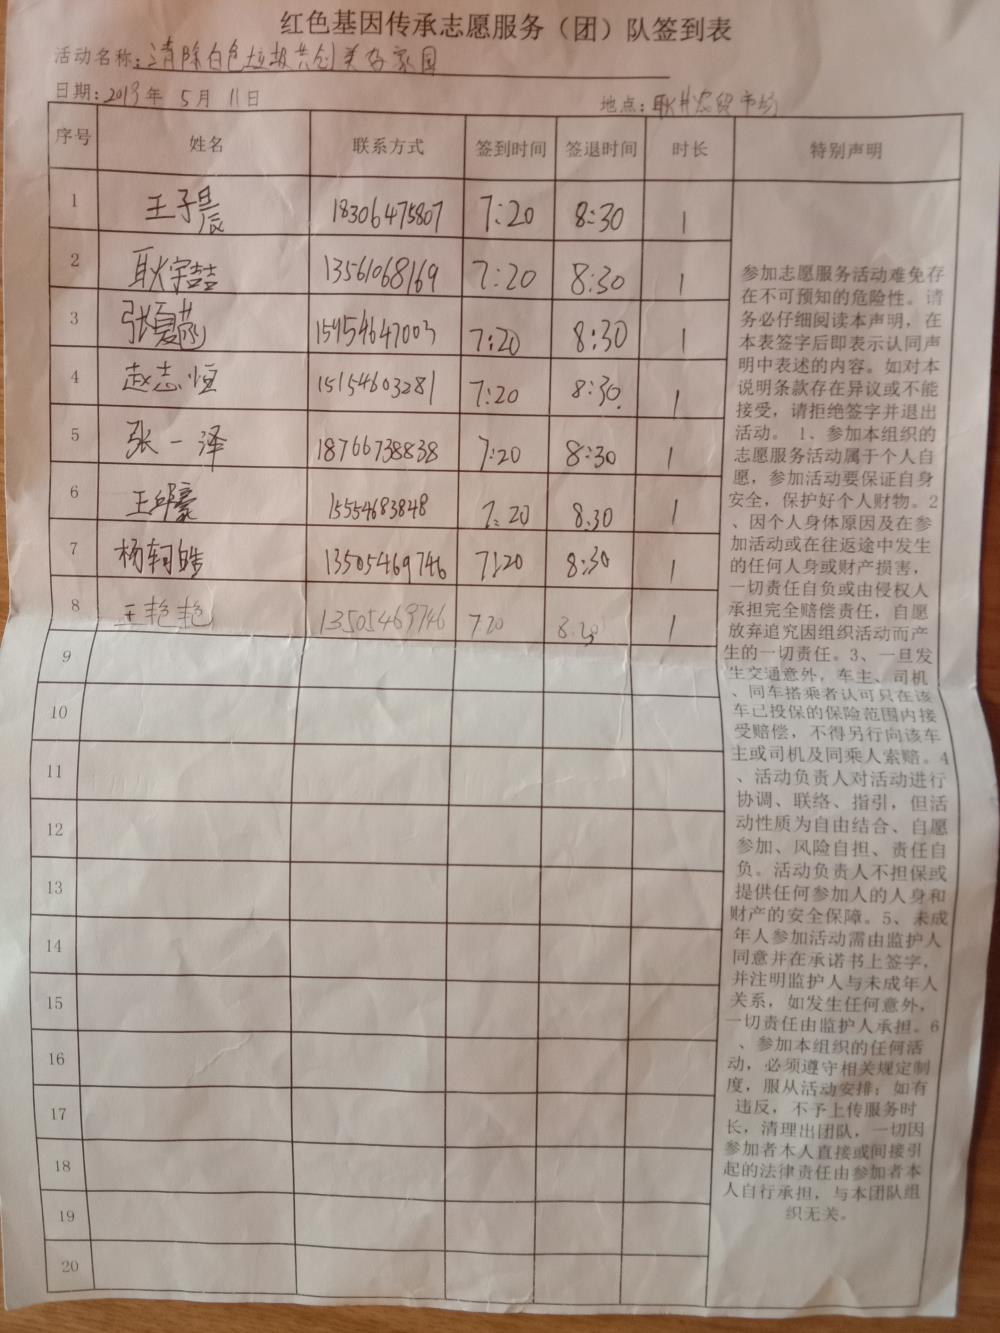 红色基因传承志愿服务（团）队签到表
活动名称：清除白色垃圾共创美好家园
日期：2019年 5月 11日 地点：耿井农贸市场
序号 姓名 联系方式 签到时间 签退时间 时长 特别声明
1 王子晨 18306475807 7:20 8:30 1
2 耿宇喆 13561068169 7:20 8:30 1
3 张夏菡 15954647003 7:20 8:30 1
4 赵志恒 15154603281 7:20 8:30 1
5 张一泽 18766738838 7:20 8:30 1
6 王邱豪 15554683848 7:20 8:30 1
7 杨轲皓 13505469746 7:20 8:30 1
8 王艳艳 13505469746 7:20 8:30 1
9
10
11
12
13
14
15
16
17
18
19
20
参加志愿服务活动难免存
在不可预知的危险性。请
务必仔细阅读本声明，在
本表签字后即表示认同声
明中表述的内容。如对本
说明条款存在异议或不能
接受，请拒绝签字并退出
活动。 1、参加本组织的
志愿服务活动属于个人自
愿，参加活动要保证自身
安全，保护好个人财物。2
、因个人身体原因及在参
加活动或在往返途中发生
的任何人身或财产损害，
一切责任自负或由侵权人
承担完全赔偿责任，自愿
放弃追究因组织活动而产
生的一切责任。3、一旦发
生交通意外，车主、司机
、同车搭乘者认可只在该
车已投保的保险范围内接
受赔偿，不得另行向该车
主或司机及同乘人索赔。4
、活动负责人对活动进行
协调、联络、指引，但活
动性质为自由结合、自愿
参加、风险自担、责任自
负。活动负责人不担保或
提供任何参加人的人身和
财产的安全保障。5、未成
年人参加活动需由监护人
同意并在承诺书上签字，
并注明监护人与未成年人
关系，如发生任何意外，
一切责任由监护人承担。6
、参加本组织的任何活
动，必须遵守相关规定制
度，服从活动安排；如有
违反，不予上传服务时
长，清理出团队，一切因
参加者本人直接或间接引
起的法律责任由参加者本
人自行承担，与本团队组
织无关。